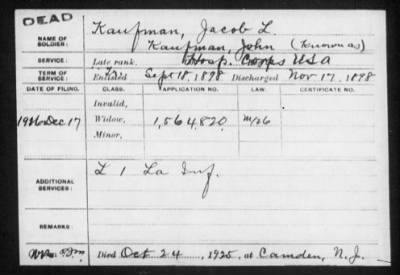 DEAD
Kaufman, Jacob L.
NAME OF SOLDIER:
Kaufman, John (Known as)
SERVICE:
Late rank, Hosp. Corps USA
TERM OF SERVICE:
Enlisted Sept 18, 1898 Discharged Nov 17, 1898
DATE OF FILING. CLASS. APPLICATION NO. LAW. CERTIFICATE NO.
Invalid,
1926 Dec 17 Widow, 1,564,820
Minor,
ADDITIONAL SERVICES:
L 1 La Inf.
REMARKS:
Died Oct 24, 1925, at Camden, N.J.